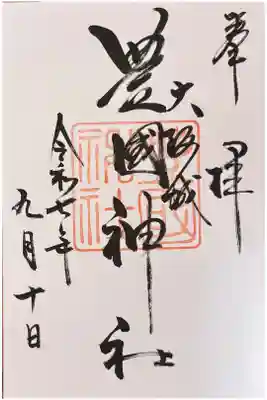 奉拝
大阪城
豊國神社
上
令和七年
九月十日